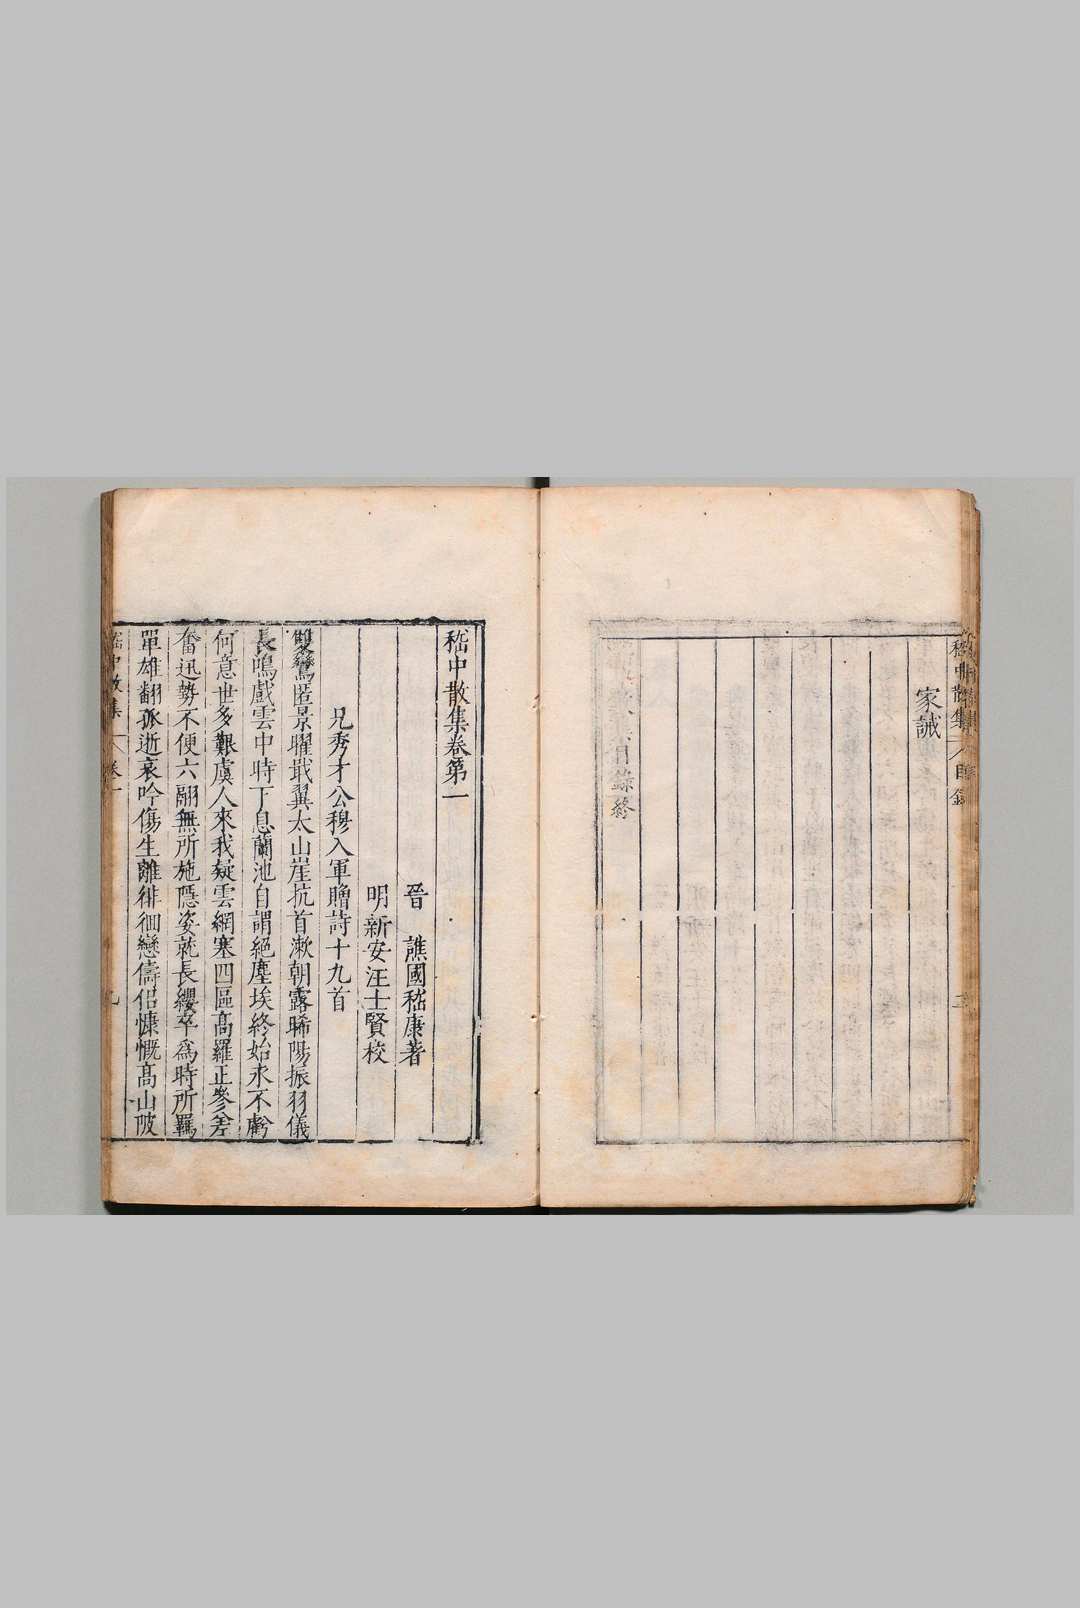 嵇中散集 目錄
家誡
目錄終
嵇中散集卷第一
晉 譙國嵇康著
明新安汪士賢校
兄秀才公穆入軍贈詩十九首
雙鸞匿景曜戢翼太山崖抗首漱朝露晞陽振羽儀
長鳴戲雲中時下息蘭池自謂絕塵埃終始永不虧
何意世多艱虞人來我疑雲網塞四區髙羅正參差
奮迅勢不便六翮無所施隱姿就長纓卒為時所羈
單雄翻孤逝哀吟傷生離徘徊戀儔侶慷慨髙山陂
嵇中散集 卷一